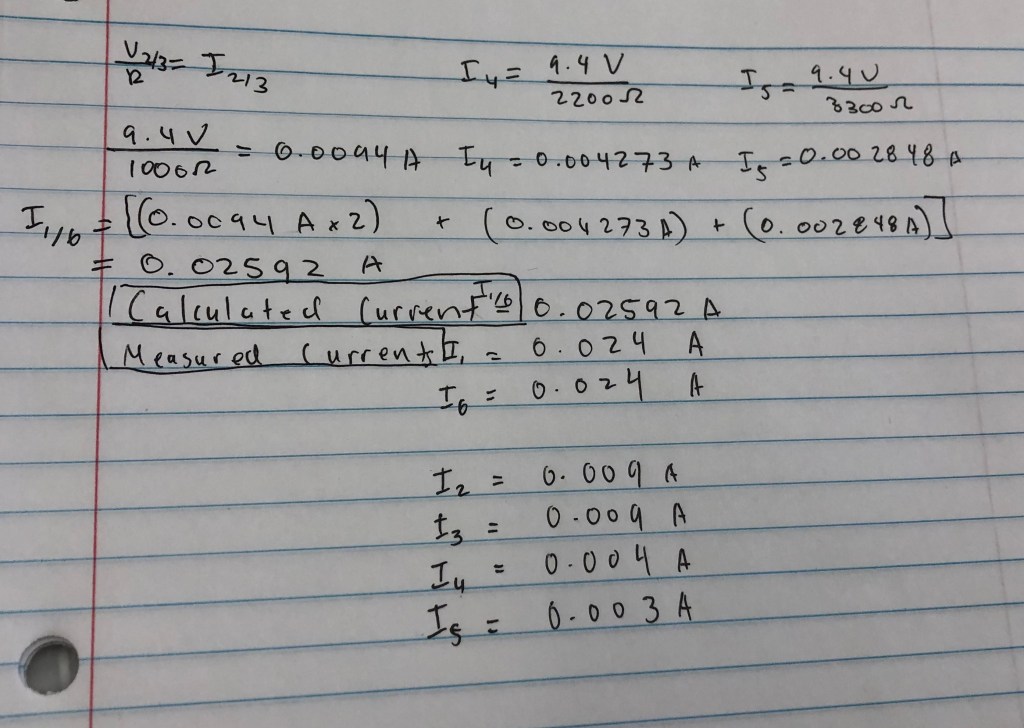 V2/3/R = I2/3 I4 = 9.4 V/2200Ω I5 = 9.4V/3300Ω
9.4 V/1000Ω = 0.0094 A I4 = 0.004273 A I5 = 0.002848 A
I1/6 = [(0.0094 A x 2) + (0.004273A) + (0.002848A)]
= 0.02592 A
Calculated Current I1/6 = 0.02592 A
Measured Currents I1 = 0.024 A
I6 = 0.024 A
I2 = 0.009 A
I3 = 0.009 A
I4 = 0.004 A
I5 = 0.003 A